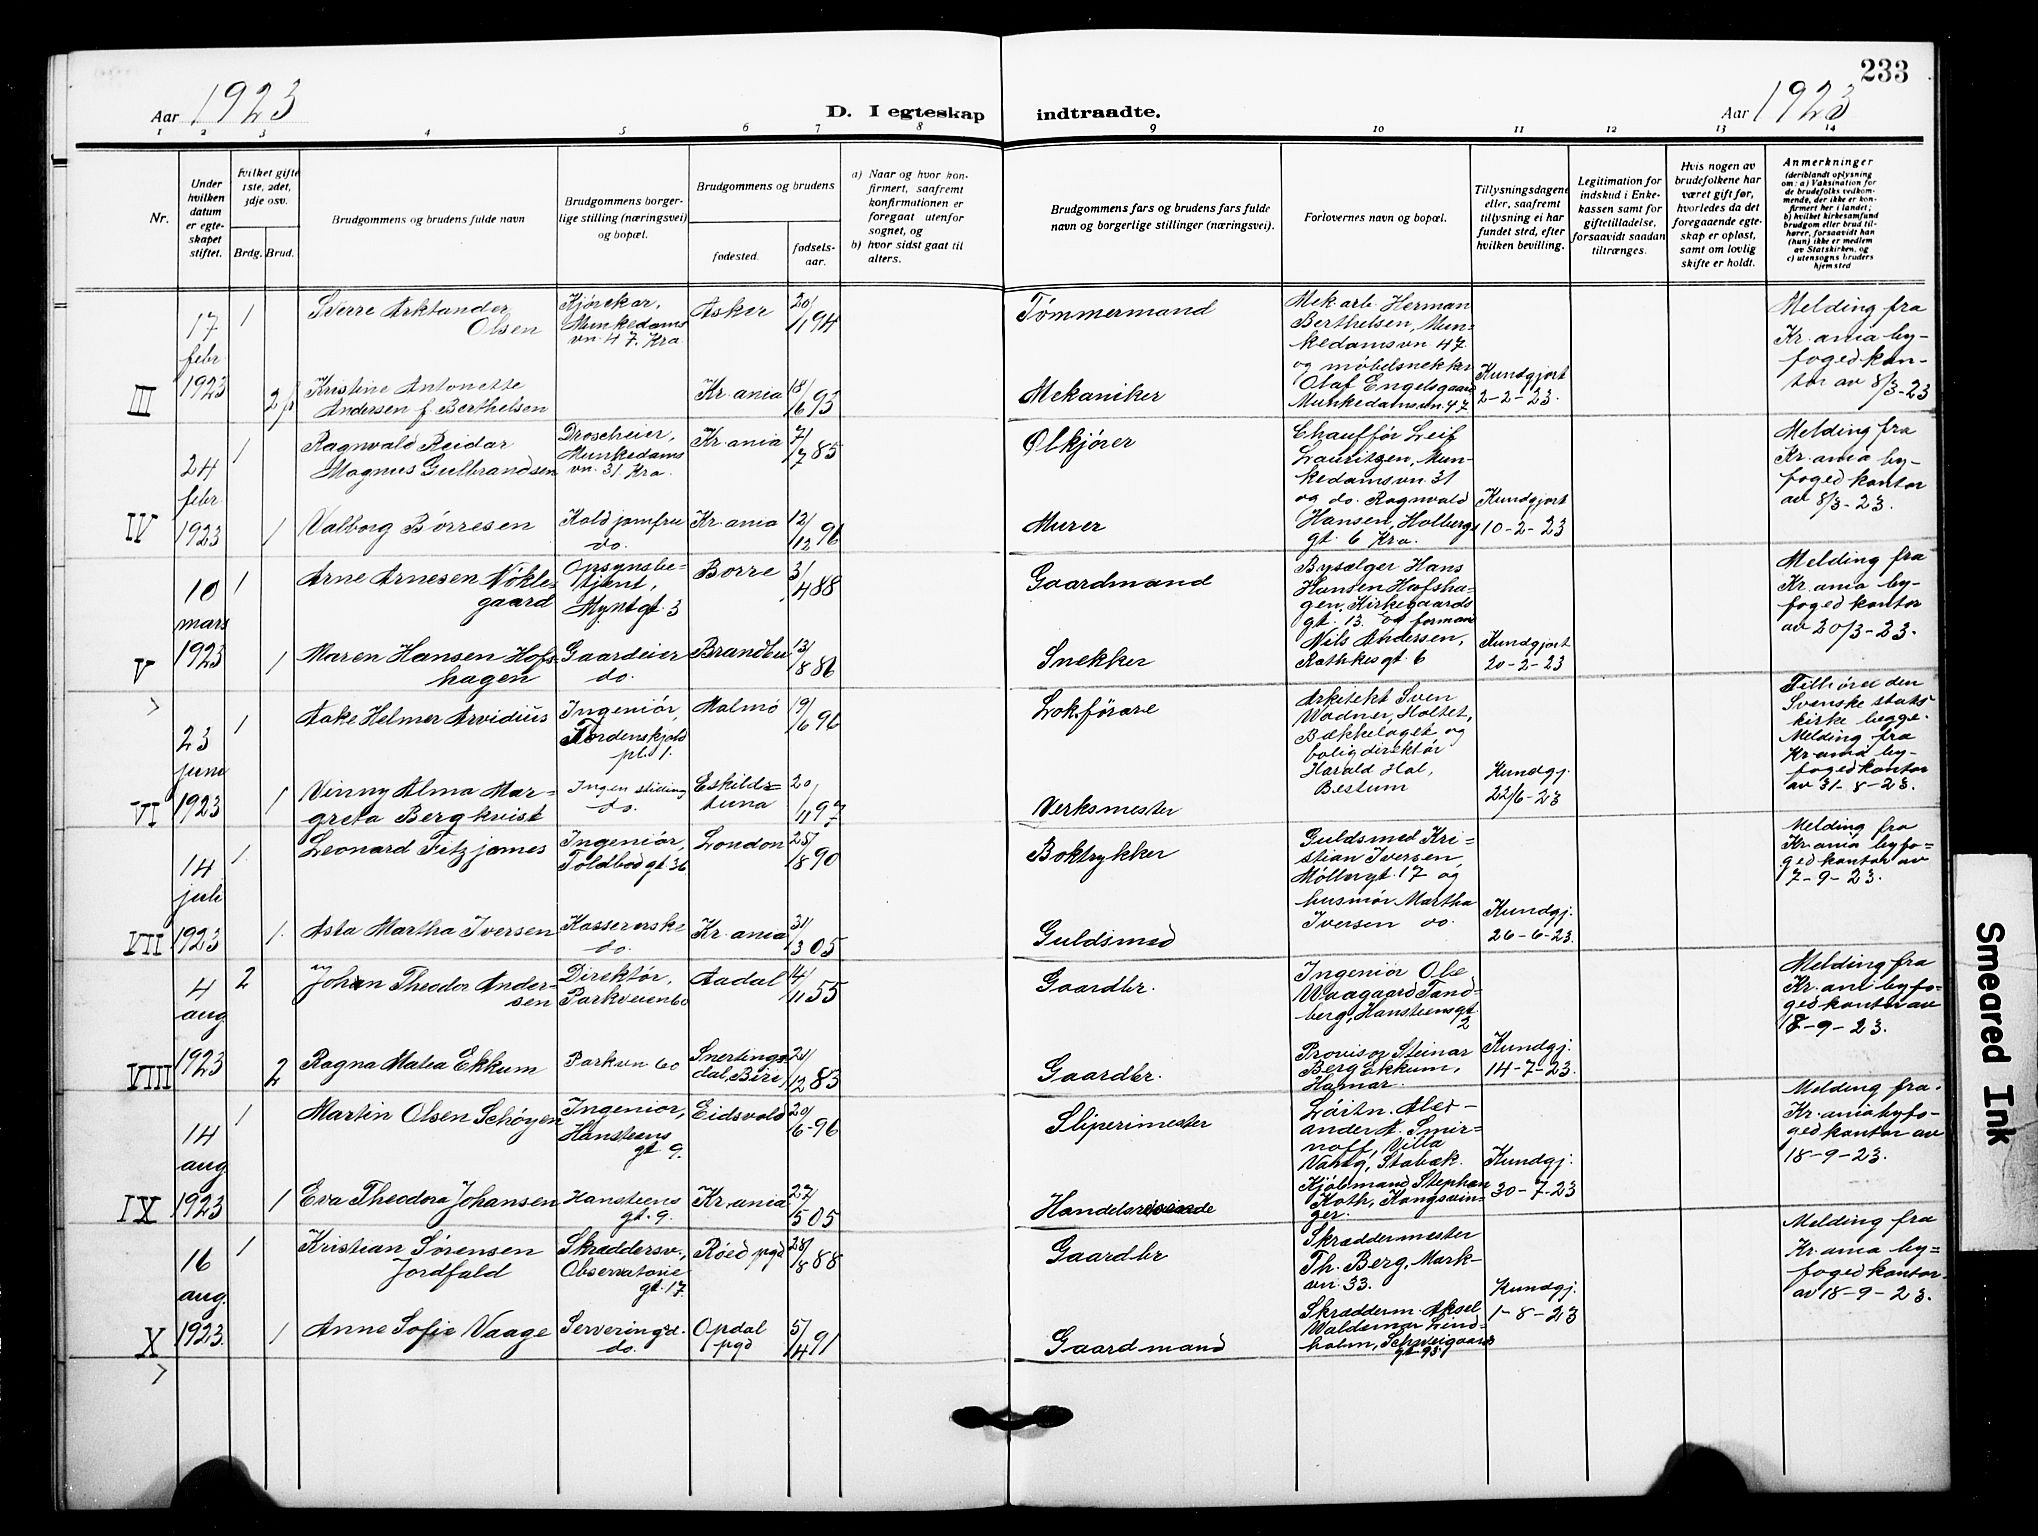 233
Aar 1923
D. I egteskap indtraadte.
Aar 1923
1 2 3 4 5 6 7 8 9 10 11 12 13 14
Nr.
Under hvilken datum er egteskapet stiftet.
Hvilket gifte 1ste, 2det, 3dje osv.
Brdg. Brud.
Brudgommens og brudens fulde navn
Brudgommens borgerlige stilling (næringsvei) og bopæl.
Brudgommens og brudens
fødested.
fødselsaar.
a) Naar og hvor konfirmert, saafremt konfirmationen er foregaat utenfor sognet, og
b) hvor sidst gaat til alters.
Brudgommens fars og brudens fars fulde navn og borgerlige stillinger (næringsvei).
Forlovernes navn og bopæl.
Tillysningsdagene eller, saafremt tillysning ei har fundet sted, efter hvilken bevilling.
Legitimation for indskud i Enkekassen samt for giftetilladelse, forsaavidt saadan tiltrænges.
Hvis nogen av brudefolkene har været gift før, hvorledes da det foregaaende egteskap er opløst, samt om lovlig skifte er holdt.
Anmerkninger
(deriblandt oplysning om: a) Vaksination for de brudefolks vedkommende, der ikke er konfirmert her i landet; b) hvilket kirkesamfund brudgom eller brud tilhører, forsaavidt han (hun) ikke er medlem av Statskirken, og c) utensogns bruders hjemsted
III
17 febr. 1923
1
Sverre Arktander Olsen
Kjørekar, Munkedamsvn. 47. Kra.
Asker
20/11 94
Tømmermand
Mek. arb. Herman Berthelsen, Munkedamsvn. 47 og møbelsnekker Olaf Engelsgaard Munkedamsvn. 47
Kundgjort 2-2-23.
Melding fra Kr.ania byfogedkontor av 8/3-23
Kristine Antonette Andersen f. Berthelsen
Kr.ania
18/6 93
Mekaniker
IV
24 febr. 1923
1
Ragnvald Reidar Magnus Gulbrandsen
Droscheier, Munkedamsvn. 31 Kra.
Kr.ania
7/7 85
Ølkjører
Chauffør Leif Lauritzen, Munkedamsvn. 31 og do. Ragnvald Hansen, Holbergs gt. 6 Kra.
Kundgjort 10-2-23
Melding fra Kr.ania byfogedkontor av 8/3-23.
1
Valborg Børresen
Koldjomfru do.
Kr.ania
12/12 96
Murer
V
10 mars 1923
1
Arne Arnesen Nøklegaard
Opsynsbetjent, Myntgt. 3
Borre
3/4 88
Gaardmand
Bysælger Hans Hansen Hofshagen, Kirkegaardsgt. 13. og formand Nils Andersen, Rathkesgt. 6
Kundgjort 20-2-23
Melding fra Kr.ania byfogedkontor av 20/3-23.
1
Maren Hansen Hofshagen
Gaardeier do.
Brandbu
13/8 86
Snekker
VI
23 juni 1923
1
Aake Helmer Arvidius
Ingeniør, Tordenskjold pl. 1.
Malmø
19/6 96
Lokförare
Arkitekt Sven Wadner, Holtet, Bækkelaget og boligdirektør Harald Hal, Bestum
Kundgj. 22/6-23
Tilhører den Svenske statskirke begge. Melding fra Kr.ania byfogedkontor av 31-8-23.
1
Vinny Alma Margreta Bergkvist
Ingen stilling do.
Eskildstuna
20/11 97
Verksmester
VII
14 juli 1923
1
Leonard Fitzjames
Ingeniør, Toldbodgt. 36
London
25/8 90
Boktrykker
Guldsmed Kristian Iversen, Møllergt. 17 og husmor Martha Iversen do.
Kundgj. 26-6-23.
Melding fra Kr.ania byfogedkontor av 7-9-23.
1.
Asta Martha Iversen
Kassererske do.
Kr.ania
31/3 05
Guldsmed
VIII
4 aug 1923
2
Johan Theodor Andersen
Direktør, Parkveien 60
Aadal
4/11 55
Gaardbr.
Ingeniør Obe Waagaard Tandberg, Hansteensgt. 2
Provisor Steinar Berg Ekkum, Hamar.
Kundgj. 14-7-23.
Melding fra Kr.ani byfogedkontor av 18-9-23.
2
Ragna Malea Ekkum
Parkvn 60
Snertingsdal, Biri
21/12 83
Gaardbr.
IX
14 aug 1923
1
Martin Olsen Schøyen
Ingeniør, Hansteens gt. 9.
Eidsvold
20/6-96
Sliperimester
Løitn. Alexander A. Smirnoff, Villa Stabæk. Kjøbmand Stephan Koth, Kongsvinger.
Kundgj. 30-7-23
Melding fra Kr.ania byfogedkontor av 18-9-23.
1
Eva Theodora Johansen
Hansteens gt. 9.
Kr.ania
27/5 05
X
16 aug. 1923.
1
Kristian Sørensen Jordfald
Skræddersv., Observatorie gt. 17.
Røed pgd
28/8 88
Gaardbr
Skræddermester Th. Berg, Markvn. 33. Skrædderm. Aksel Waldemar Lindholm, Schweigaards gt. 95
Kundgj. 1-8-23
Melding fra Kr.ania byfogedkontor av 18-9-23.
1
Anne Sofie Vaage
Serveringsd. do.
Opdal pgd
5/4 91
Gaardmand
Smeared Ink